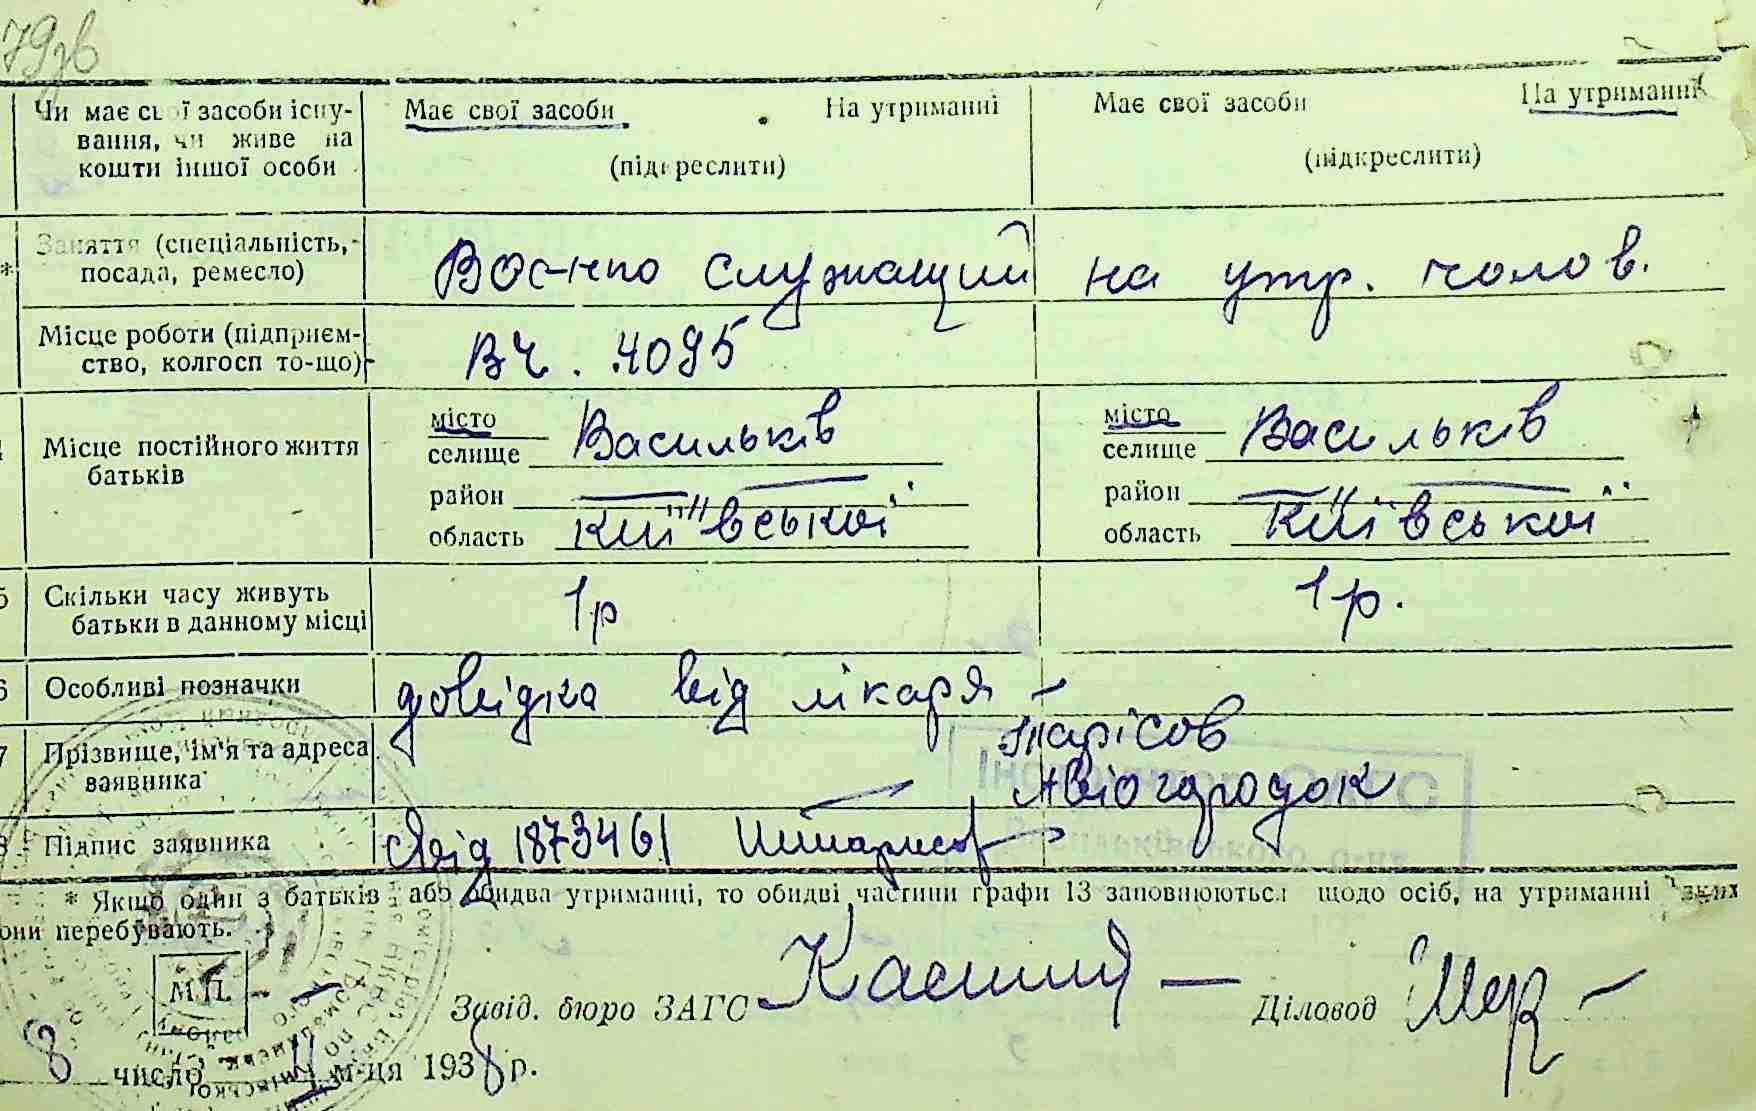 79зв
Чи має свої засоби існу-
вання, чи живе на
кошти іншої особи
Має свої засоби На утриманні
(підкреслити)
Має свої засоби На утриманні
(підкреслити)
* Заняття (спеціальність,
посада, ремесло)
Воєнно служащий
на утр. чолов.
Місце роботи (підприєм-
ство, колгосп то-що)
ВЧ. 4095
Місце постійного життя
батьків
місто
селище Васильків
район —
область Київської
місто
селище Васильків
район —
область Київської
5 Скільки часу живуть
батьки в данному місці
1р
1р.
6 Особливі позначки
довідка від лікаря
7 Прізвище, ім'я та адреса
заявника
Авіогородок
8 Підпис заявника
1873461
* Якщо один з батьків або обидва утриманні, то обидві частини графи 13 заповнюються щодо осіб, на утриманні яких
вони перебувають.
М.П.
Завід. бюро ЗАГС
Діловод
8 число м-ця 1938 р.